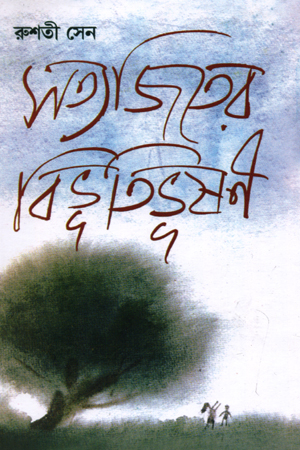 রুশতী সেন
সত্যজিতের
বিভূতিভূষণ